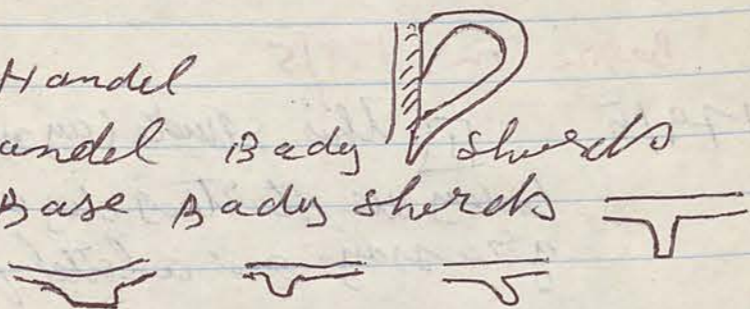 Handel
andel Bady sherds
Base Bady sherds